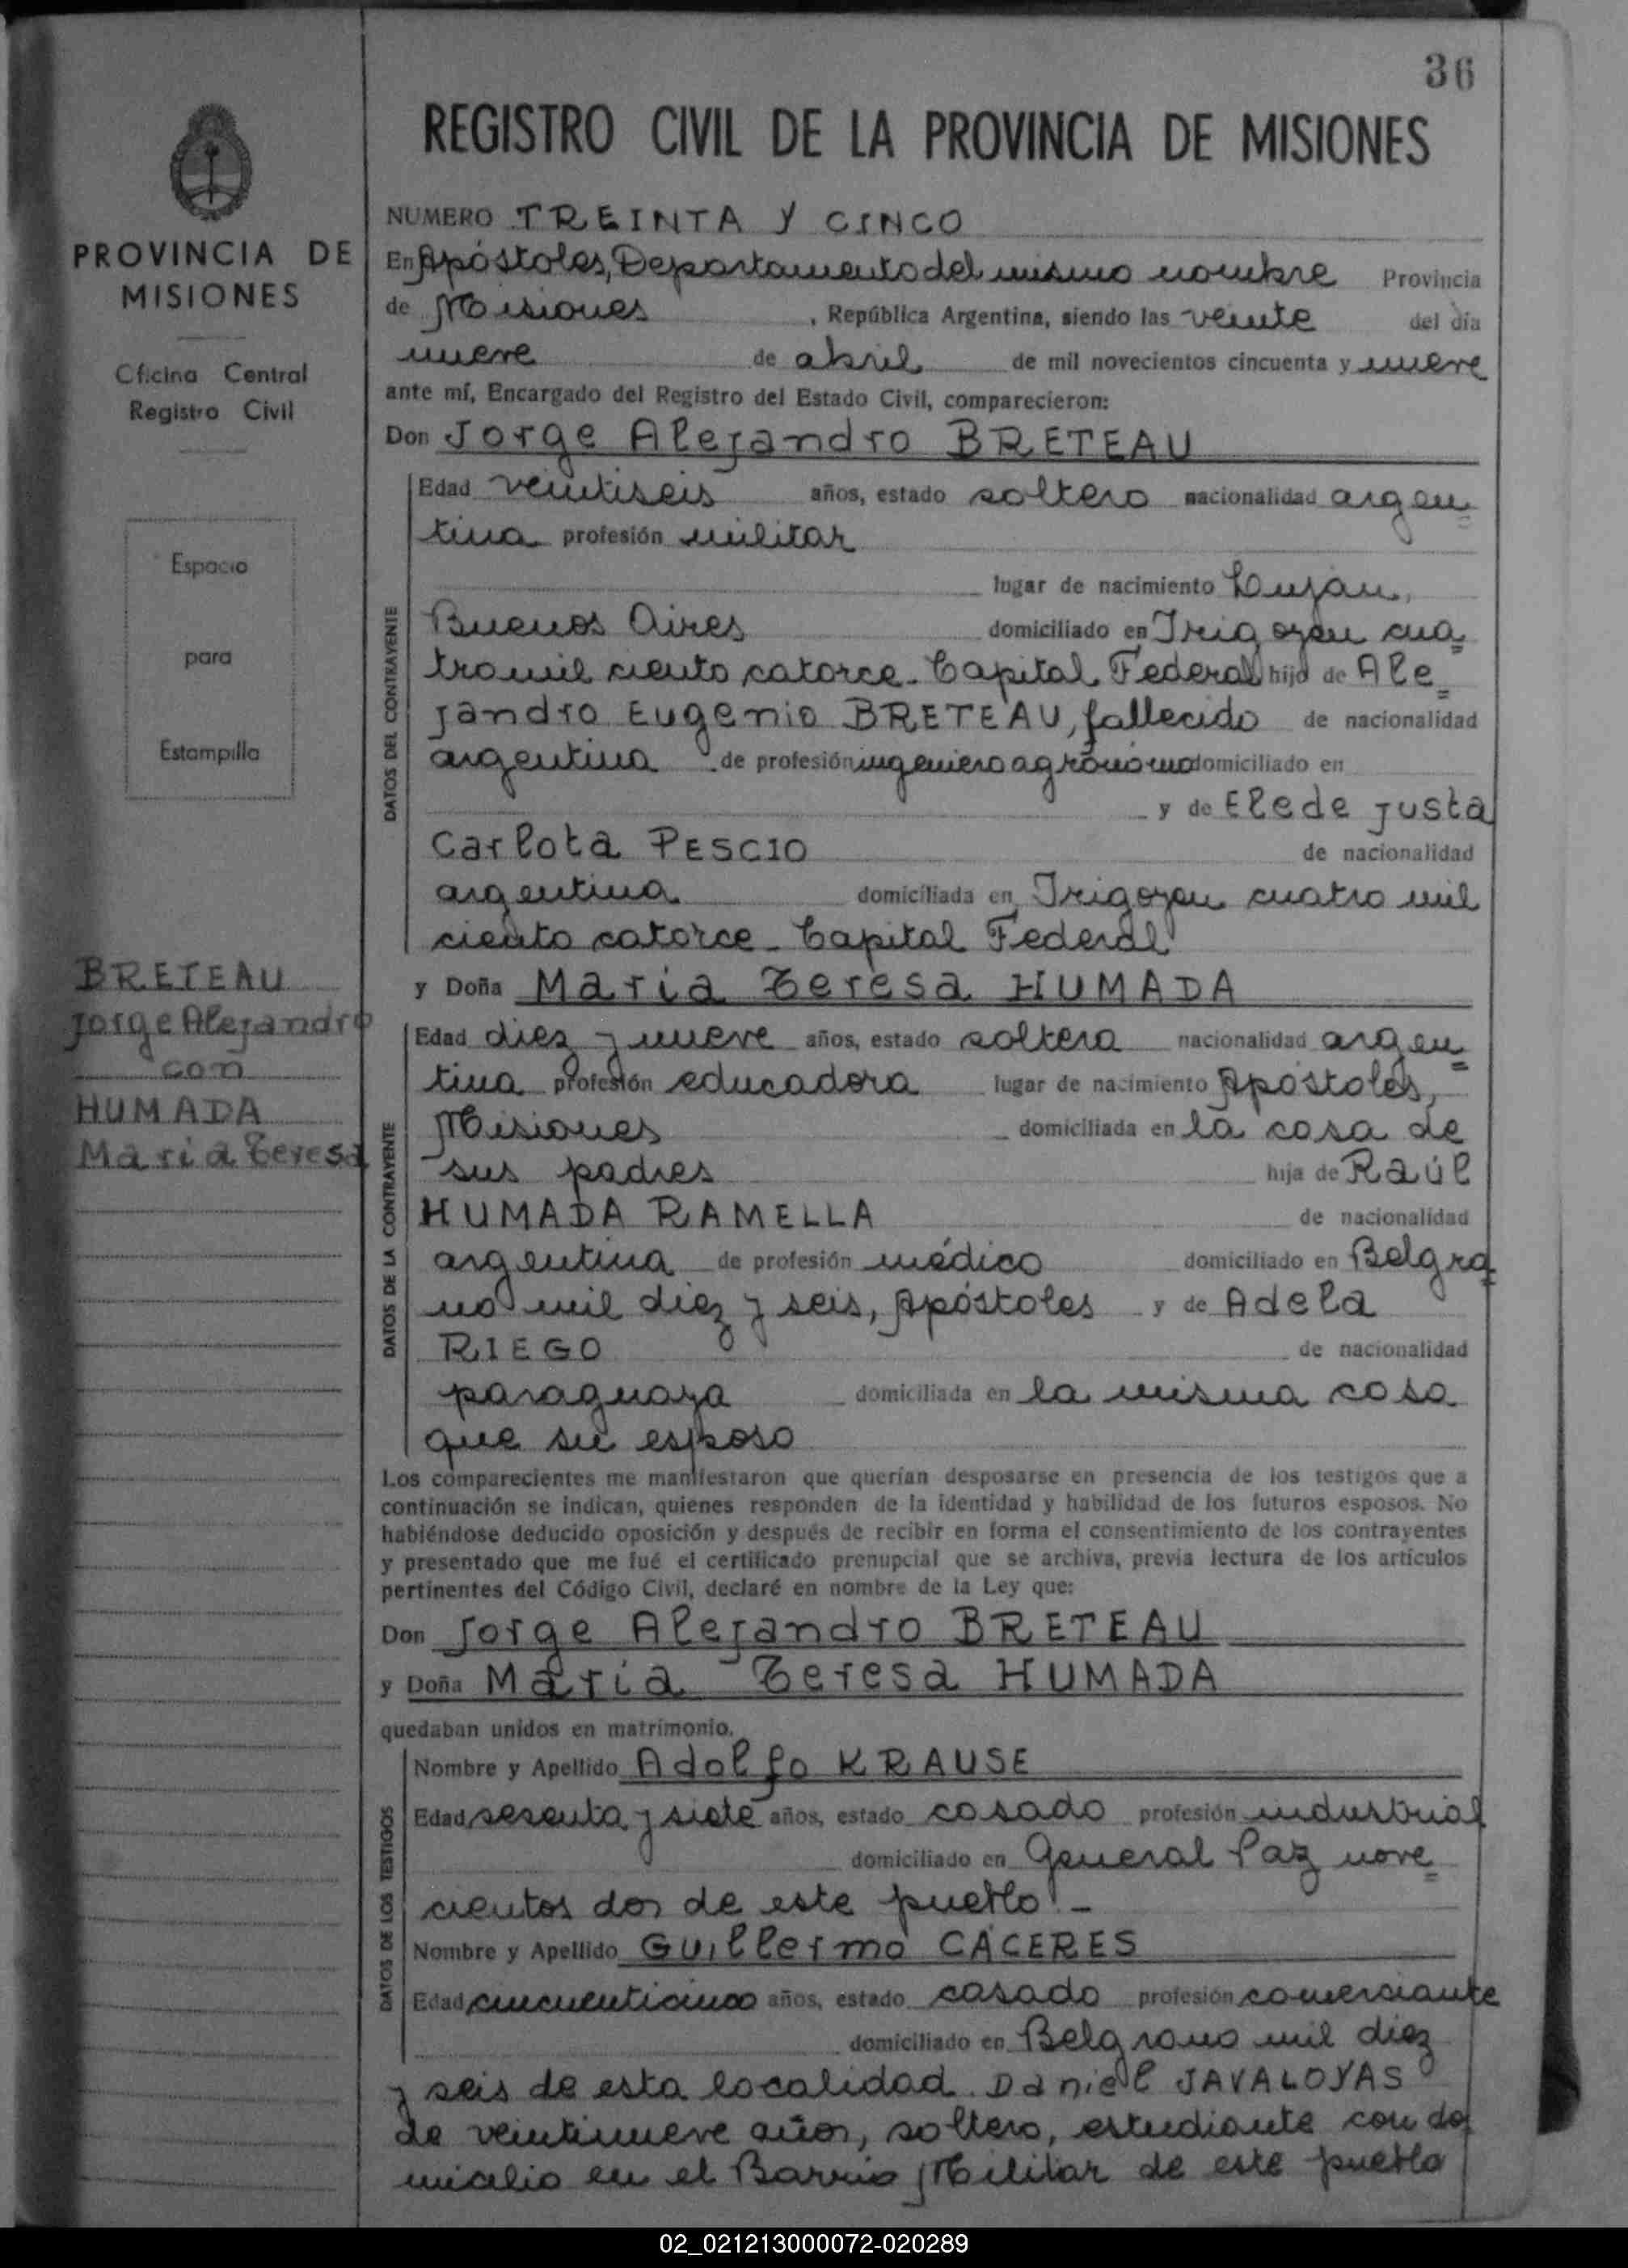 36
REGISTRO CIVIL DE LA PROVINCIA DE MISIONES
PROVINCIA DE
MISIONES
Oficina Central
Registro Civil
Espacio
para
Estampilla
BRETEAU
Jorge Alejandro
con
HUMADA
Maria Teresa
NUMERO TREINTA Y CINCO
En Apóstoles, Departamento del mismo nombre Provincia
de Misiones, República Argentina, siendo las veinte del día
nueve de abril de mil novecientos cincuenta y nueve
ante mí, Encargado del Registro del Estado Civil, comparecieron:
Don Jorge Alejandro BRETEAU
DATOS DEL CONTRAYENTE
Edad veintiseis años, estado soltero nacionalidad argen=
tina profesión militar
lugar de nacimiento Lujan,
Buenos Aires domiciliado en Irigoyen cua=
tro mil ciento catorce - Capital Federal hijo de Ale=
jandro Eugenio BRETEAU, fallecido de nacionalidad
argentina de profesión ingeniero agrónomo domiciliado en
y de Elede Justa
Carlota PESCIO de nacionalidad
argentina domiciliada en Irigoyen cuatro mil
ciento catorce - Capital Federal
y Doña Maria Teresa HUMADA
DATOS DE LA CONTRAYENTE
Edad diez y nueve años, estado soltera nacionalidad argen=
tina profesión educadora lugar de nacimiento Apóstoles,
Misiones domiciliada en la casa de
sus padres hija de Raúl
HUMADA RAMELLA de nacionalidad
argentina de profesión médico domiciliado en Belgra=
no mil diez y seis, Apóstoles y de Adela
RIEGO de nacionalidad
paraguaya domiciliada en la misma casa
que su esposo
Los comparecientes me manifestaron que querían desposarse en presencia de los testigos que a
continuación se indican, quienes responden de la identidad y habilidad de los futuros esposos. No
habiéndose deducido oposición y después de recibir en forma el consentimiento de los contrayentes
y presentado que me fué el certificado prenupcial que se archiva, previa lectura de los artículos
pertinentes del Código Civil, declaré en nombre de la Ley que:
Don Jorge Alejandro BRETEAU
y Doña Maria Teresa HUMADA
quedaban unidos en matrimonio.
DATOS DE LOS TESTIGOS
Nombre y Apellido Adolfo KRAUSE
Edad sesenta y siete años, estado casado profesión industrial
domiciliado en General Paz nove=
cientos dos de este pueblo.-
Nombre y Apellido Guillermo CÁCERES
Edad cincuenticinco años, estado casado profesión comerciante
domiciliado en Belgrano mil diez
y seis de esta localidad. Daniel JAVALOYAS
de veintinueve años, soltero, estudiante con do
micilio en el Barrio Militar de este pueblo
02_021213000072-020289